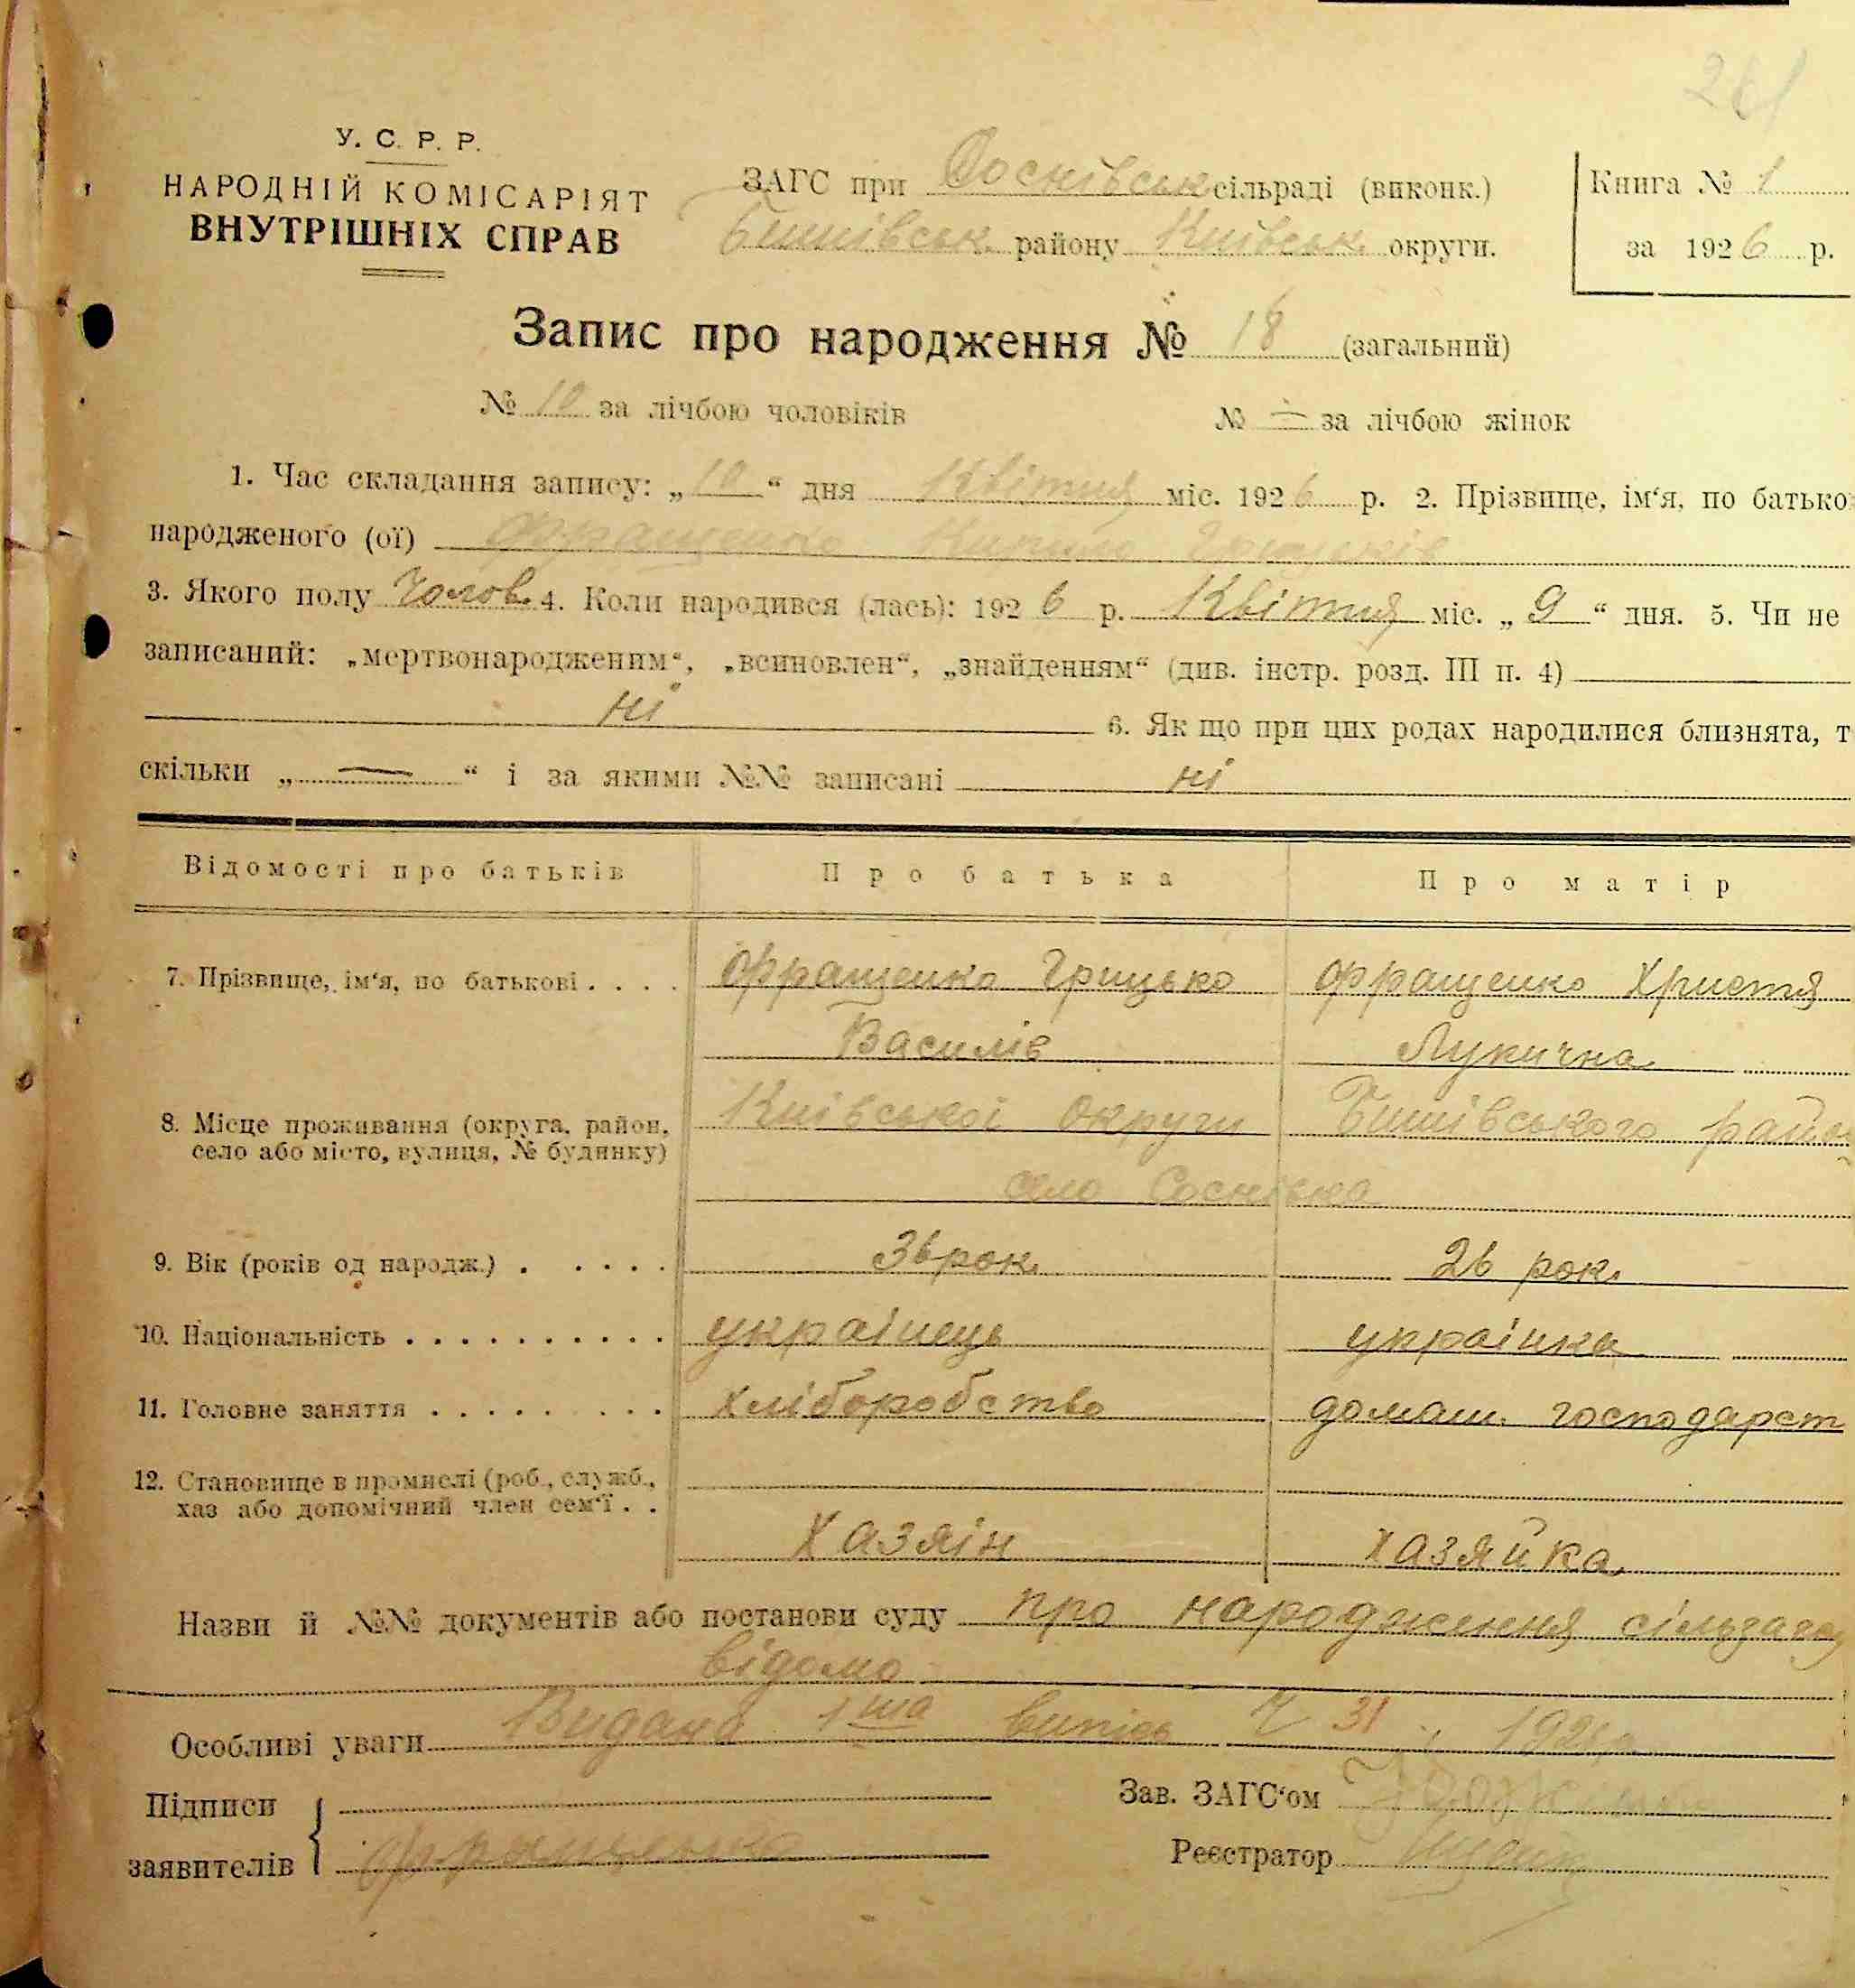 261
У. С. Р. Р.
НАРОДНІЙ КОМІСАРІЯТ
ВНУТРІШНІХ СПРАВ
ЗАГС при Соснівськ сільраді (виконк.)
Бишівськ. району Київськ. округи.
Книга № 1
за 1926 р.
Запис про народження № 18 (загальний)
№ 10 за лічбою чоловіків № — за лічбою жінок
1. Час складання запису: „10“ дня Квітня міс. 1926 р. 2. Прізвище, ім‘я, по батько
народженого (ої) Фращенко Кирило Грицьків
3. Якого полу Чолов. 4. Коли народився (лась): 1926 р. Квітня міс. „9“ дня. 5. Чи не
записаний: „мертвонародженим“, „всиновлен“, „знайденням“ (див. інстр. розд. III п. 4)
ні 6. Як що при цих родах народилися близнята, т
скільки „—“ і за якими №№ записані ні
Відомості про батьків Про батька Про матір
7. Прізвище, ім‘я, по батькові . . . . Фращенко Грицько Фращенко Христя
Василів Лукична
8. Місце проживання (округа, район, село або місто, вулиця, № будинку) Київської округи Бишівського райо
село Соснівка
9. Вік (років од народж.) . . . . . 36 рок. 26 рок.
10. Національність . . . . . . . . . . українець українка
11. Головне заняття . . . . . . . . . хліборобство домаш. господарст
12. Становище в промислі (роб., служб., хаз або допомічний член сем‘ї . .
Хазяїн хазяйка
Назви й №№ документів або постанови суду про народження сільзагсу
відомо
Особливі уваги Видана 1ша випись 31
Підписи
заявителів Фращенко
Зав. ЗАГС‘ом
Реєстратор